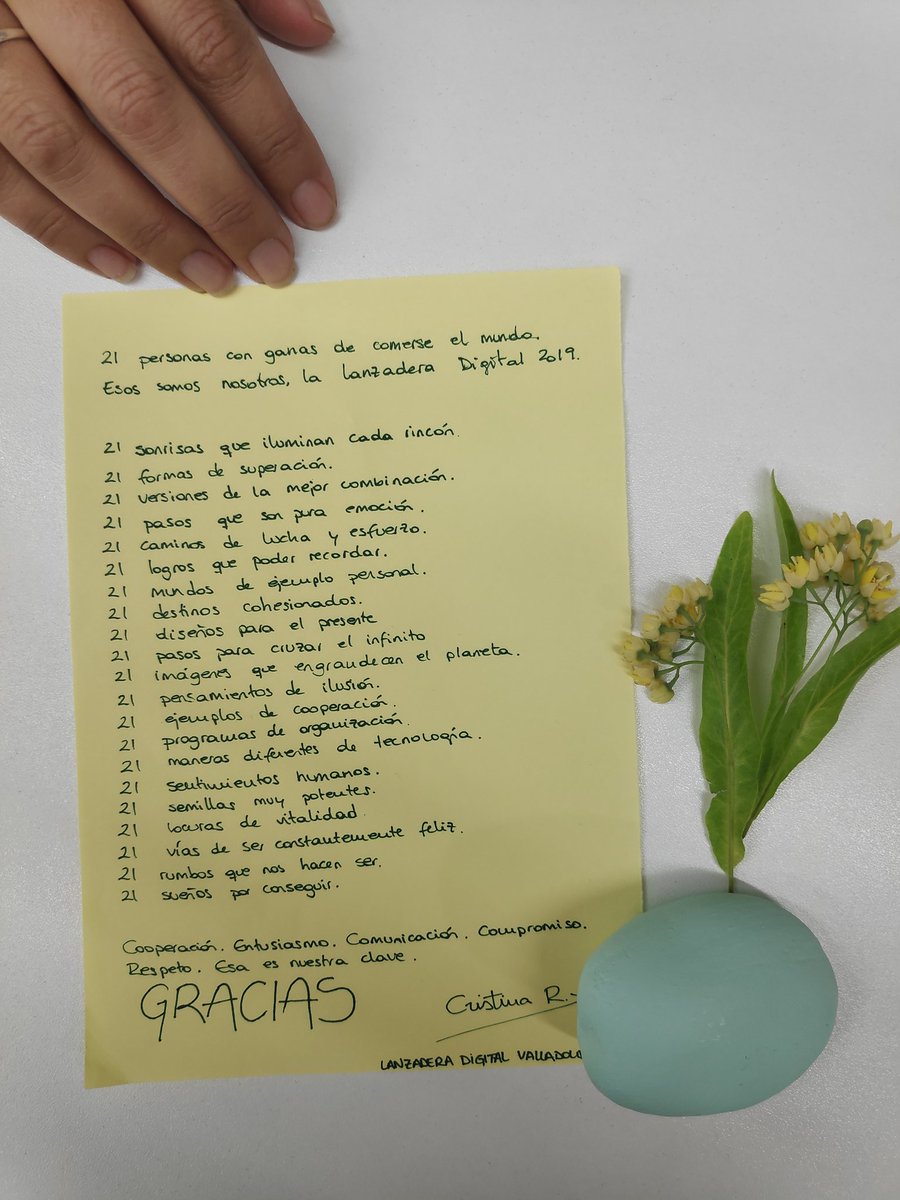 21 personas con ganas de comerse el mundo.
Esos somos nosotros, la lanzadera Digital 2019.
21 sonrisas que iluminan cada rincón.
21 formas de superación.
21 versiones de la mejor combinación.
21 pasos que son pura emoción.
21 caminos de lucha y esfuerzo.
21 logros que poder recordar.
21 mundos de ejemplo personal.
21 destinos cohesionados.
21 diseños para el presente
21 pasos para cruzar el infinito
21 imágenes que engrandecen el planeta.
21 pensamientos de ilusión.
21 ejemplos de cooperación.
21 programas de organización.
21 maneras diferentes de tecnología.
21 sentimientos humanos.
21 semillas muy potentes.
21 locuras de vitalidad.
21 vías de ser constantemente feliz.
21 rumbos que nos hacen ser.
21 sueños por conseguir.
Cooperación. Entusiasmo. Comunicación. Compromiso.
Respeto. Esa es nuestra clave.
GRACIAS
Cristina R.
LANZADERA DIGITAL VALLADOL